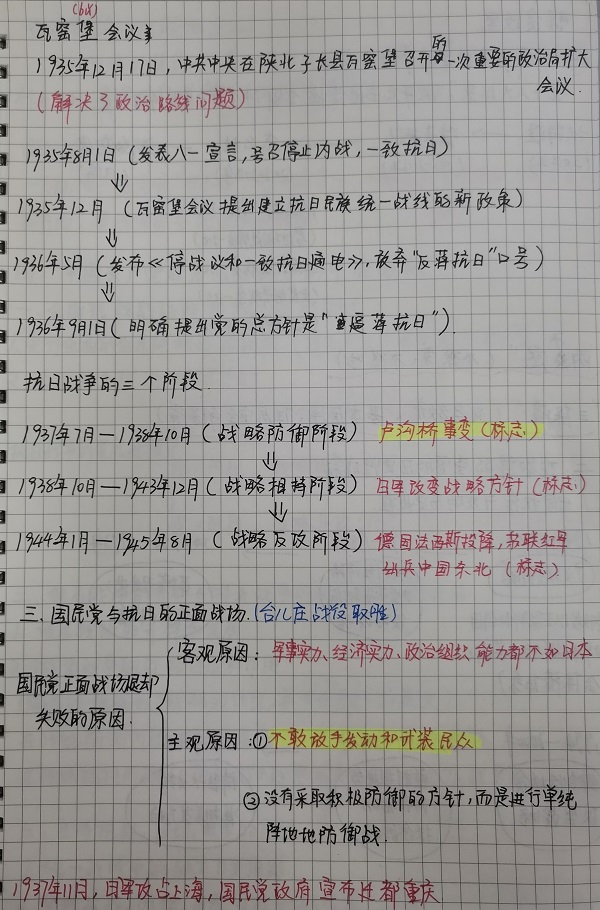 (bǔ)
瓦窑堡会议
1935年12月17日，中共中央在陕北子长县瓦窑堡召开的一次重要的政治局扩大
会议.
(解决了政治路线问题)
1935年8月1日（发表八一宣言，号召停止内战，一致抗日）
⇓
1935年12月（瓦窑堡会议提出建立抗日民族统一战线的新政策）
⇓
1936年5月（发布《停战议和一致抗日通电》，放弃“反蒋抗日”口号）
⇓
1936年9月1日（明确提出党的总方针是“逼蒋抗日”）.
抗日战争的三个阶段.
1937年7月—1938年10月（战略防御阶段） 卢沟桥事变（标志）
⇓
1938年10月—1943年12月（战略相持阶段） 日军改变战略方针（标志）
⇓
1944年1月—1945年8月（战略反攻阶段） 德国法西斯投降，苏联红军
出兵中国东北（标志）
三、国民党与抗日的正面战场.(台儿庄战役取胜)
客观原因：军事实力、经济实力、政治组织能力都不如日本
国民党正面战场退却
失败的原因.
主观原因：①不敢放手发动和武装民众
②没有采取积极防御的方针，而是进行单纯
阵地防御战.
1937年11月，日军攻占上海，国民党政府宣布迁都重庆